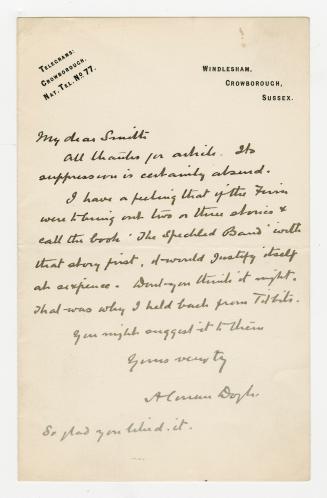 TELEGRAMS:
CROWBOROUGH.
NAT. TEL. NO 77.
WINDLESHAM,
CROWBOROUGH,
SUSSEX.
My dear Smith
All thanks for article. Its
suppression is certainly absurd.
I have a feeling that if the Firm
were to bring out two or three stories &
call the book 'The Speckled Band' with
that story first, it would justify itself
at sixpence. Don't you think it might.
That was why I held back from Titbits.
You might suggest it to them
Yours very
A Conan Doyle
So glad you liked it.